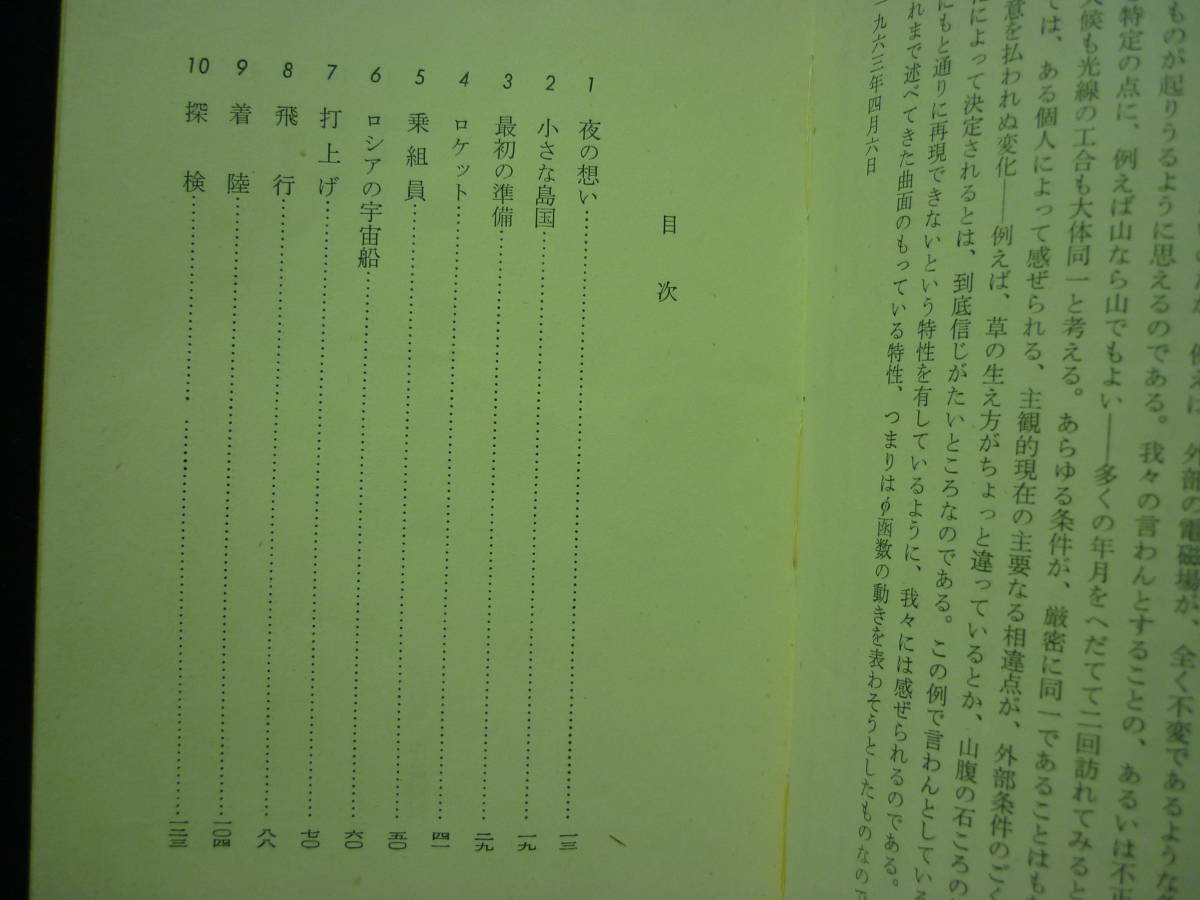 ものが起りうるように思えるのである。我々の言わんとすることの、あるいは不正
特定の点に、例えば山なら山でもよい――多くの年月をへだてて二回訪れてみると
候も光線の工合も大体同一と考える。あらゆる条件が、厳密に同一であることはも
では、ある個人によって感ぜられる、主観的現在の主要なる相違点が、外部条件のごく
意を払われぬ変化――例えば、草の生え方がちょっと違っているとか、山腹の石ころの
によって決定されるとは、到底信じがたいところなのである。この例で言わんとしている
にもと通りに再現できないという特性を有しているように、我々には感ぜられるのである。
れまで述べてきた曲面のもっている特性、つまりはφ函数の動きを表わそうとしたものなの
一九六三年四月六日
目次
1 夜の想い……一三
2 小さな島国……一九
3 最初の準備……二九
4 ロケット……四一
5 乗組員……五〇
6 ロシアの宇宙船……六〇
7 打上げ……七〇
8 飛行……八八
9 着陸……一〇四
10 探検……一二三